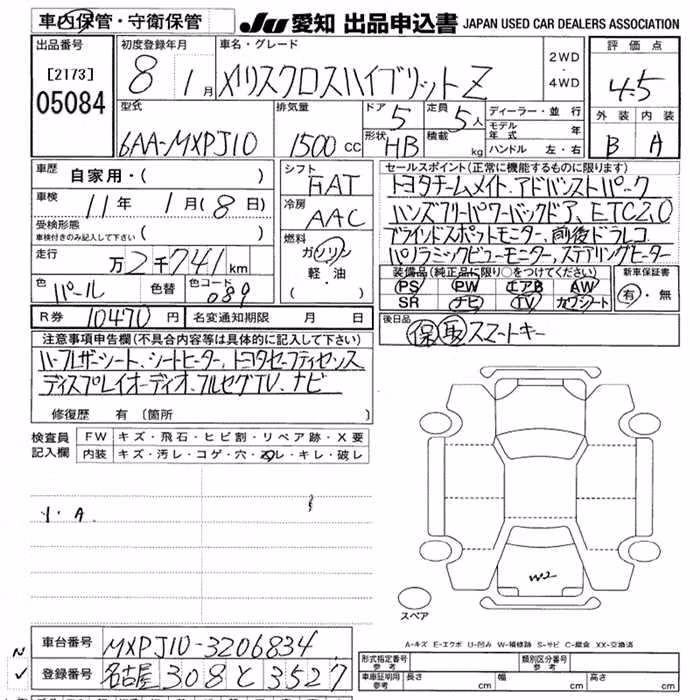 車内保管・守衛保管
JU 愛知 出品申込書 JAPAN USED CAR DEALERS ASSOCIATION
出品番号
[2173]
05084
初度登録年月
8 1月
車名・グレード
メリスクロスハイブリットZ
2WD
・
4WD
評価点
4.5
外装 内装
B A
型式
6AA-MXPJ10
排気量
1500 CC
ドア 5
形状 HB
定員 5人
積載 kg
ディーラー・並行
モデル年式 年
ハンドル 左・右
車歴 自家用・( )
車検 11年 1月(8日)
受検形態
車検付きのみ記入して下さい ( )
走行 万2千741km
色 パール 色替 色コード 089
シフト
FAT
冷房
AAC
燃料
ガソリン
軽・油
( )
セールスポイント(正常に機能するものに限ります)
トヨタチームメイト、アドバンストパーク
ハンズフリーパワーバックドア、ETC2.0
ブラインドスポットモニター、前後ドラレコ
パノラミックビューモニター、ステアリングヒーター
装備品(純正品に限り○をつけてください)
PS PW エアB AW
SR ナビ TV カワシート
新車保証書
有・無
後日品
保 取 スマートキー
R券 10470円 名変通知期限 月 日
注意事項申告欄(不具合内容等は具体的に記入して下さい)
ハーフレザーシート、シートヒーター、トヨタセーフティセンス
ディスプレイオーディオ、フルセグTV、ナビ
修復歴 有 〔箇所 〕
検査員記入欄
FW キズ・飛石・ヒビ割・リペア跡・X要
内装 キズ・汚レ・コゲ・穴・スレ・キレ・破レ
・A
W2
スペア
A-キズ E-エクボ U-凹み W-補修跡 S-サビ C-腐食 XX-交換済
車台番号 MXPJ10-3206834
登録番号 名古屋 308 と 3527
形式指定番号 参考
類別区分番号 参考
車庫証明用 参考 長さ cm 幅 cm 高さ cm